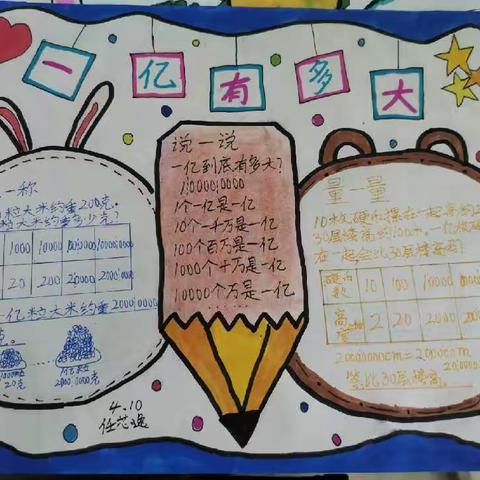 一亿有多大
一称
粒大米约重200克。
粒大米约重多少克?
1000 10000
20 200 20000
一亿粒大米约重
20克
说一说
一亿到底有多大?
1个一亿是一亿
10个一千万是一亿
100个百万是一亿
1000个十万是一亿
10000个万是一亿
量一量
10枚硬币摞在一起高约
30层楼高约100m,一亿枚硬
在一起会比30层楼高吗?
硬币数 10 100 10000
高度 2 20 2000
答比30层楼高
4.10
任芯逸